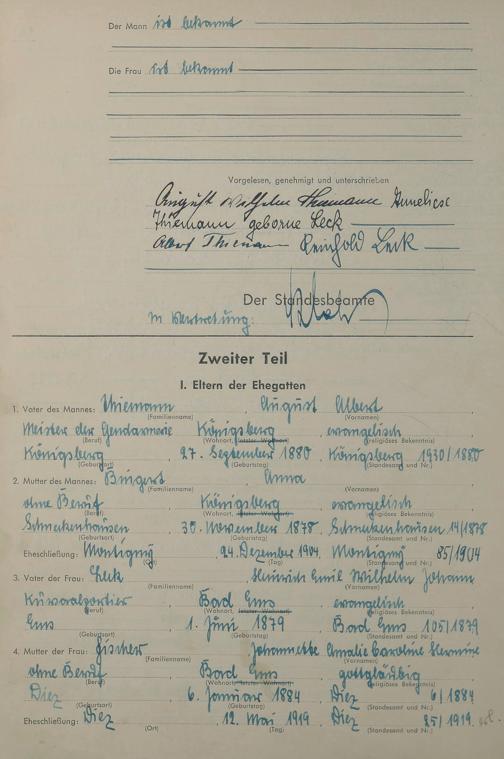 Der Mann ist bekannt
Die Frau ist bekannt
Vorgelesen, genehmigt und unterschrieben
August Wilhelm Thiemann Anneliese
Thiemann geborne Leck
Albert Thiemann Reinhold Leck
Der Standesbeamte
In Vertretung:
Zweiter Teil
I. Eltern der Ehegatten
1. Vater des Mannes: Thiemann August Albert
(Familienname) (Vornamen)
Meister der Gendarmerie Königsberg evangelisch
(Beruf) (Wohnort, letzter Wohnort) (religiöses Bekenntnis)
Königsberg 27. September 1880 Königsberg 1930/1880
(Geburtsort) (Geburtstag) (Standesamt und Nr.)
2. Mutter des Mannes: Bingert Anna
(Familienname) (Vornamen)
ohne Beruf Königsberg evangelisch
(Beruf) (Wohnort, letzter Wohnort) (religiöses Bekenntnis)
Schneckenhausen 30. November 1878 Schneckenhausen 14/1878
(Geburtsort) (Geburtstag) (Standesamt und Nr.)
Eheschließung: Montigny 24. Dezember 1904 Montigny 85/1904
(Ort) (Tag) (Standesamt und Nr.)
3. Vater der Frau: Leck Heinrich Emil Wilhelm Johann
(Familienname) (Vornamen)
Kursaalportier Bad Ems evangelisch
(Beruf) (Wohnort, letzter Wohnort) (religiöses Bekenntnis)
Ems 1. Juni 1879 Bad Ems 105/1879
(Geburtsort) (Geburtstag) (Standesamt und Nr.)
4. Mutter der Frau: Fischer Johannette Amalie Caroline Hermine
(Familienname) (Vornamen)
ohne Beruf Bad Ems gottgläubig
(Beruf) (Wohnort, letzter Wohnort) (religiöses Bekenntnis)
Diez 6. Januar 1884 Diez 6/1884
(Geburtsort) (Geburtstag) (Standesamt und Nr.)
Eheschließung: Diez 12. Mai 1919 Diez 25/1919.
(Ort) (Tag) (Standesamt und Nr.)